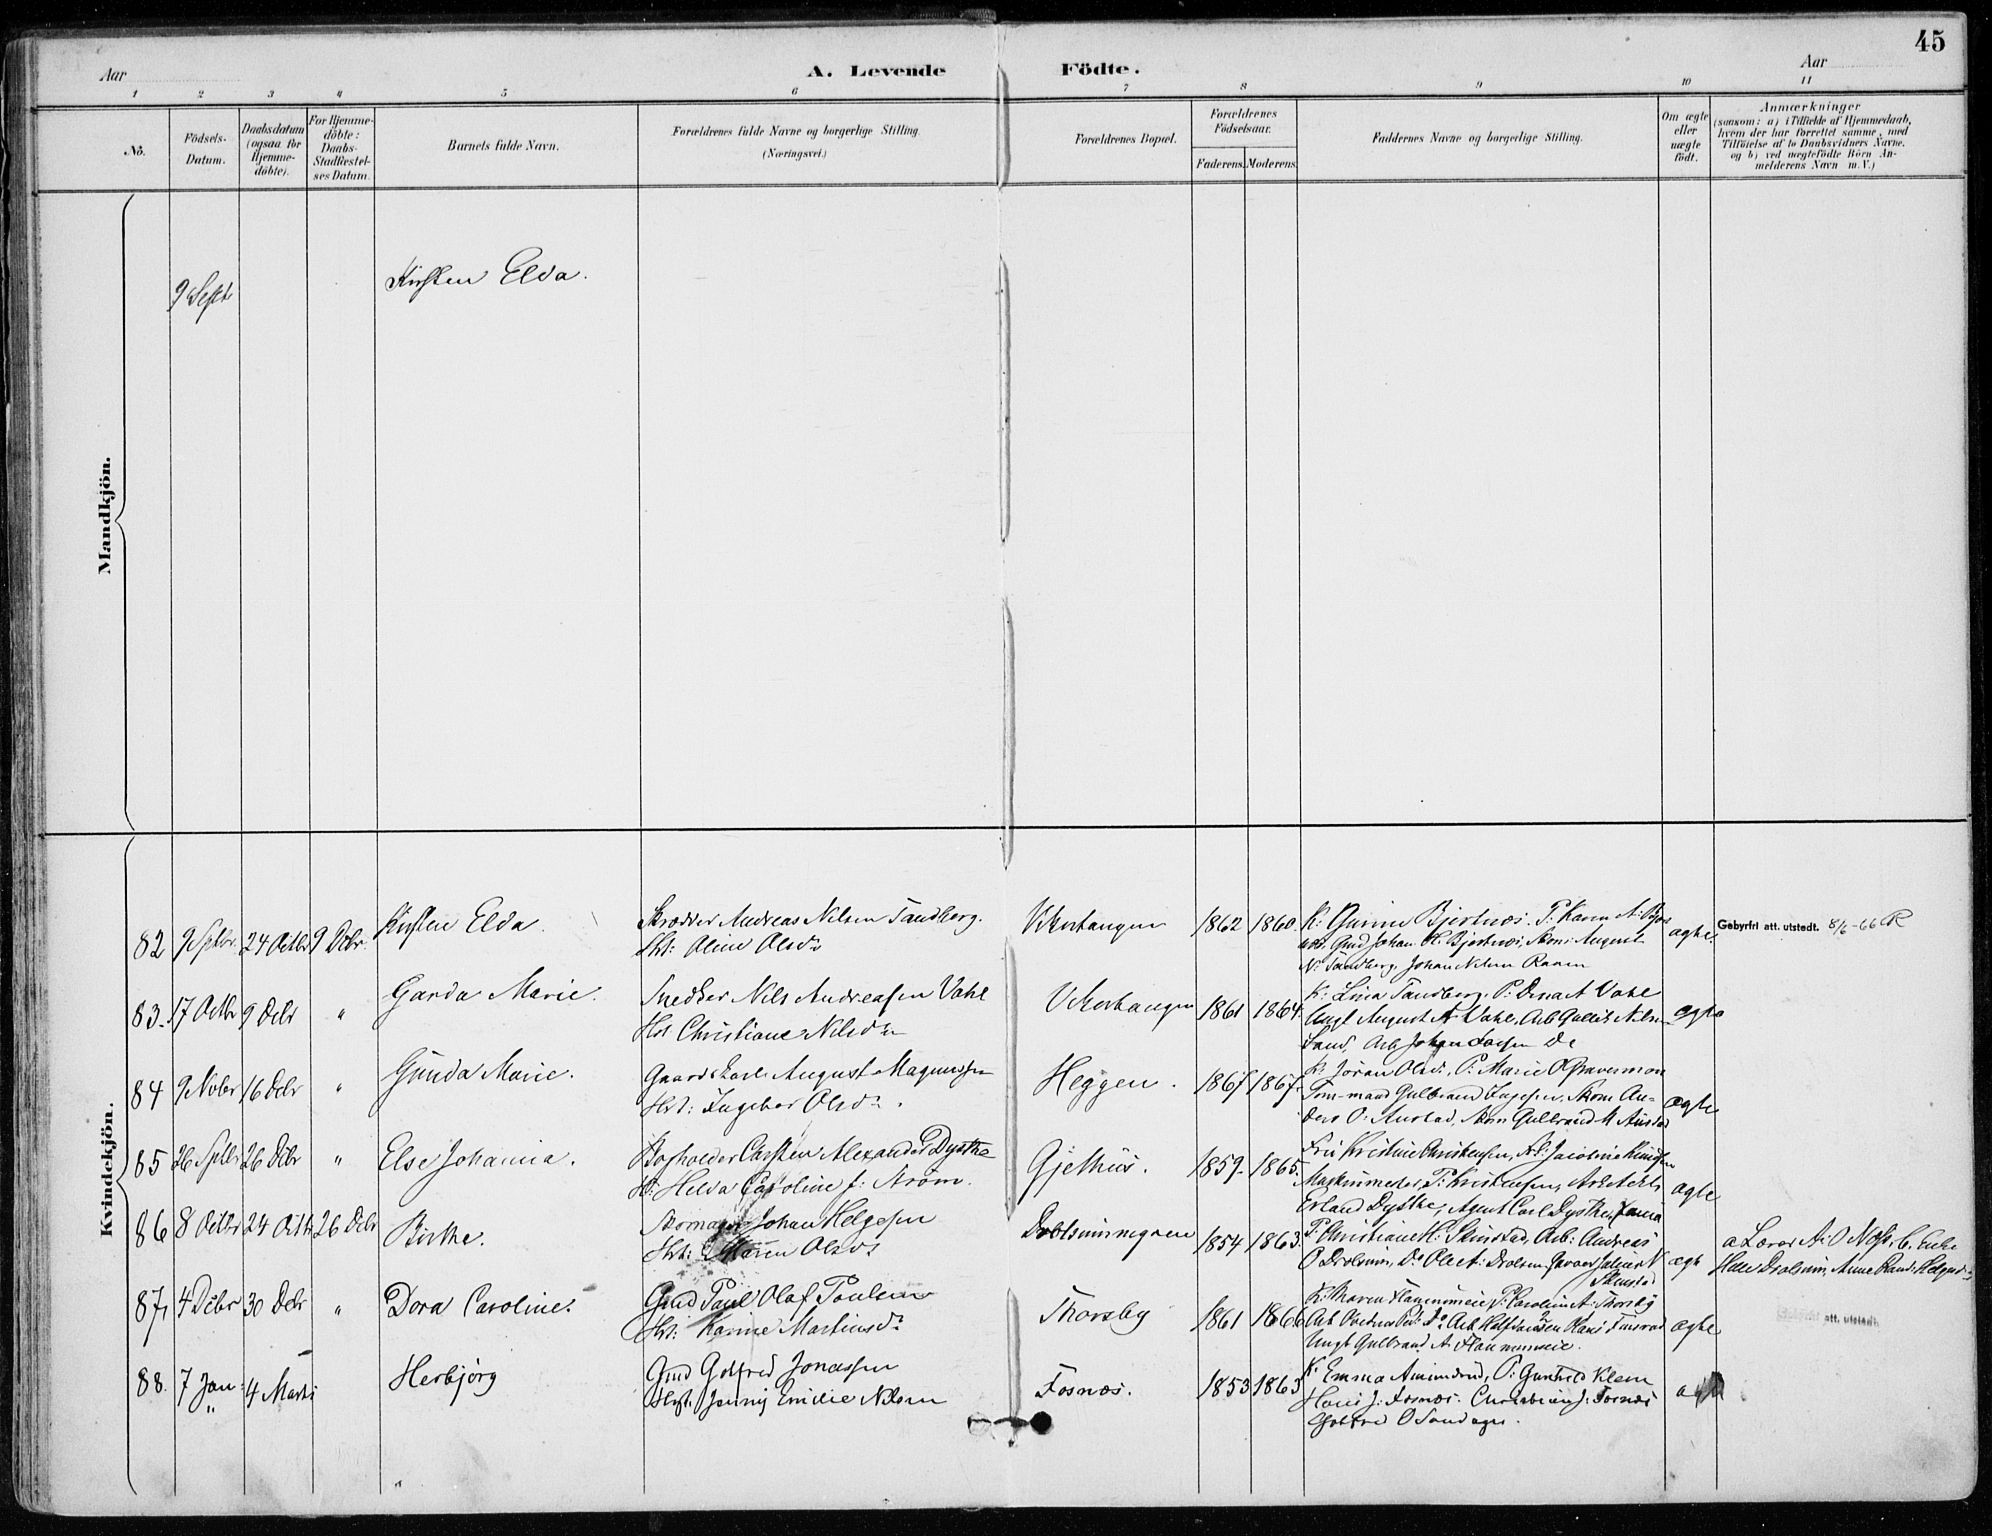 45
Aar
A. Levende Födte.
Aar
1 2 3 4 5 6 7 8 9 10 11
No.
Födsels-
Datum.
Daabsdatum
(ogsaa for
Hjemme-
döbte).
For Hjemme-
döbte:
Daabs-
Stadfæstel-
ses Datum.
Barnets fulde Navn.
Forældrenes fulde Navne og borgerlige Stilling.
(Næringsvei.)
Forældrenes Bopæl.
Forældrenes
Födselsaar.
Faderens.
Moderens.
Faddernes Navne og borgerlige Stilling.
Om ægte
eller
uægte
födt.
Anmærkninger
(saasom: a) i Tilfælde af Hjemmedaab,
hvem der har forrettet samme, med
Tilföielse af to Daabsvidners Navne.
og b) ved uægtefödte Börn An-
melderens Navn m.V.)
Mandkjön.
9 Sept
Kirsten Elda.
Kvindekjön.
82 9 Septbr. 24 Octbr 9 Debr. Kirsten Elda
Skrædder Andreas Nilsen Sandberg.
Hst: Oline Olsdr
Vikerhaugen 1862 1860
K: Gurine Bjertnæs. P: Karen A: Bjert
næs. Gmd Johan H. Bjertnæs, Skom: August
N: Sandberg, Johan Nilsen Raaen
ægte.
Gebyrfri att. utstedt. 8/6-66 R
83. 17 Octbr 9 Debr " Garda Marie.
Snedker Nils Andreasen Vahl
Hst Christiane Nilsdr
Vikerhaugen 1861 1864.
K: Lina Sandberg. P: Dina A Vahl
Ungk August A Vahl, Arb
ægte
84 9 Nobr 16 Debr " Gunda Marie.
Gaardsk Karl August Magnussen
Hst: Ingebor Olsdr.
Heggen. 1867 1867.
K: Jöran Olsdr, P: Marie O Gravermoen
Töm-mand Gulbrand Skom An-
ders O: Aurstad, Skom Gulbrand M Aurstad
ægte
85 26 Septbr 26 Debr " Else Johanna.
Bogholder Carsten Alexander Dysthe
H: Hilda Caroline f: Ström.
Gjethus. 1859. 1865.
Fru Kristine Christensen, Frk: Jacobine Knudsen
Maskinmester P: Kristensen, Arkitekt
Erland Dysthe, Agent Carl Dysthe,
ægte
86 8 Octbr 24 Octb 26 Debr Birthe.
Skomager Johan Helgesen
Hst: Maren Olsdr
Drolsumsegnen 1854 1863.
P: Christiane H: Skinstad, Arb: Andreas
O Drolsum, Do Ole A: Drolsum
Skinstad
ægte
a Lærer A: O Næss, b. Enke
Helle Drolsum, Anne Rand: Helgesd
87, 4 Debr 30 Debr " Dora Caroline.
Gmd Paul Olaf Paulsen
Hst: Karine Martinsdr
Thorsby 1861 1866
K: Maren Flannumeie P: Caroline A: Thorsby
Arb Halfdansen Hans
Ungk Gulbrand A: Flannumeie.
ægte
att. utstedt
88. 7 Jan 4 Marts Herbjörg
"
Gmd Gotfred Jonassen
Hst. Jenny Emilie Nilsen
Fosnæs. 1853 1863
K: Emma Amundrud, P: Gunhild Klem
Hans J: Fosnæs. Christian J: Fosnæs
Gotfred O Sandager.